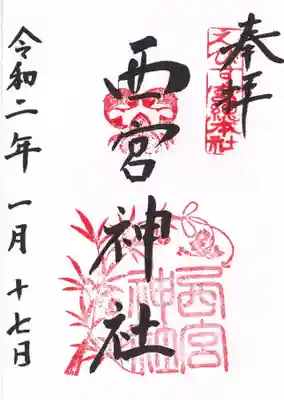 奉拝
えびす宮総本社
西宮神社
西宮
神社
令和二年一月十七日